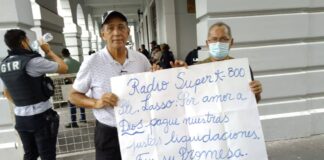 GIR
Radio Super K-800
Lasso. Por amor a
Dios pague nuestras
justas liquidaciones.
su promesa.